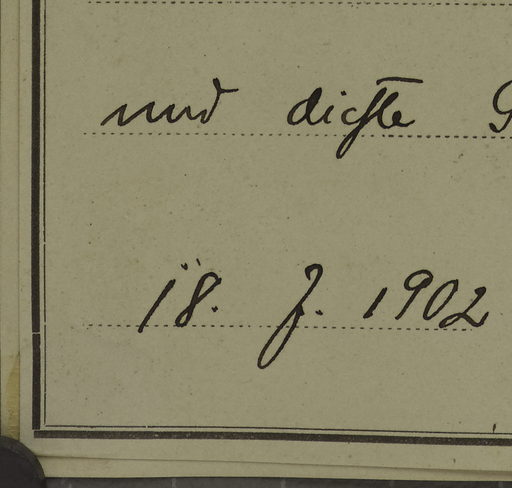 und dichte
18. J. 1902